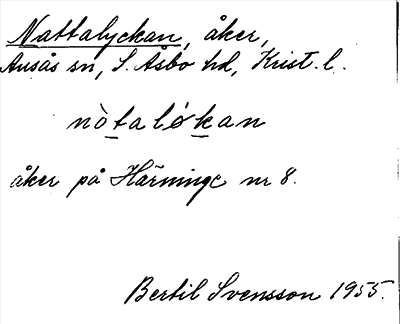 Nattalyckan, åker,
Ausås sn, S. Åsbo hd, Krist. l.
nòtaløkan
åker på Härninge nr 8.
Bertil Svensson 1955.